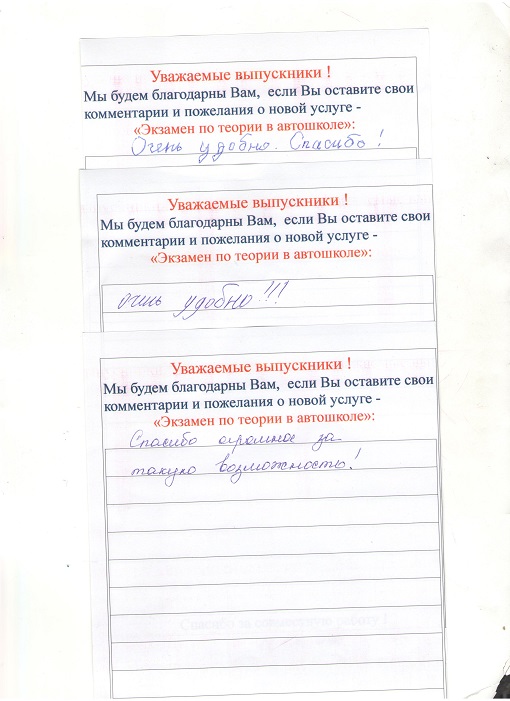 Уважаемые выпускники !
Мы будем благодарны Вам, если Вы оставите свои
комментарии и пожелания о новой услуге -
«Экзамен по теории в автошколе»:
Очень удобно. Спасибо!
Уважаемые выпускники !
Мы будем благодарны Вам, если Вы оставите свои
комментарии и пожелания о новой услуге -
«Экзамен по теории в автошколе»:
очень удобно!!!
Уважаемые выпускники !
Мы будем благодарны Вам, если Вы оставите свои
комментарии и пожелания о новой услуге -
«Экзамен по теории в автошколе»:
Спасибо огромное за
такую возможность!